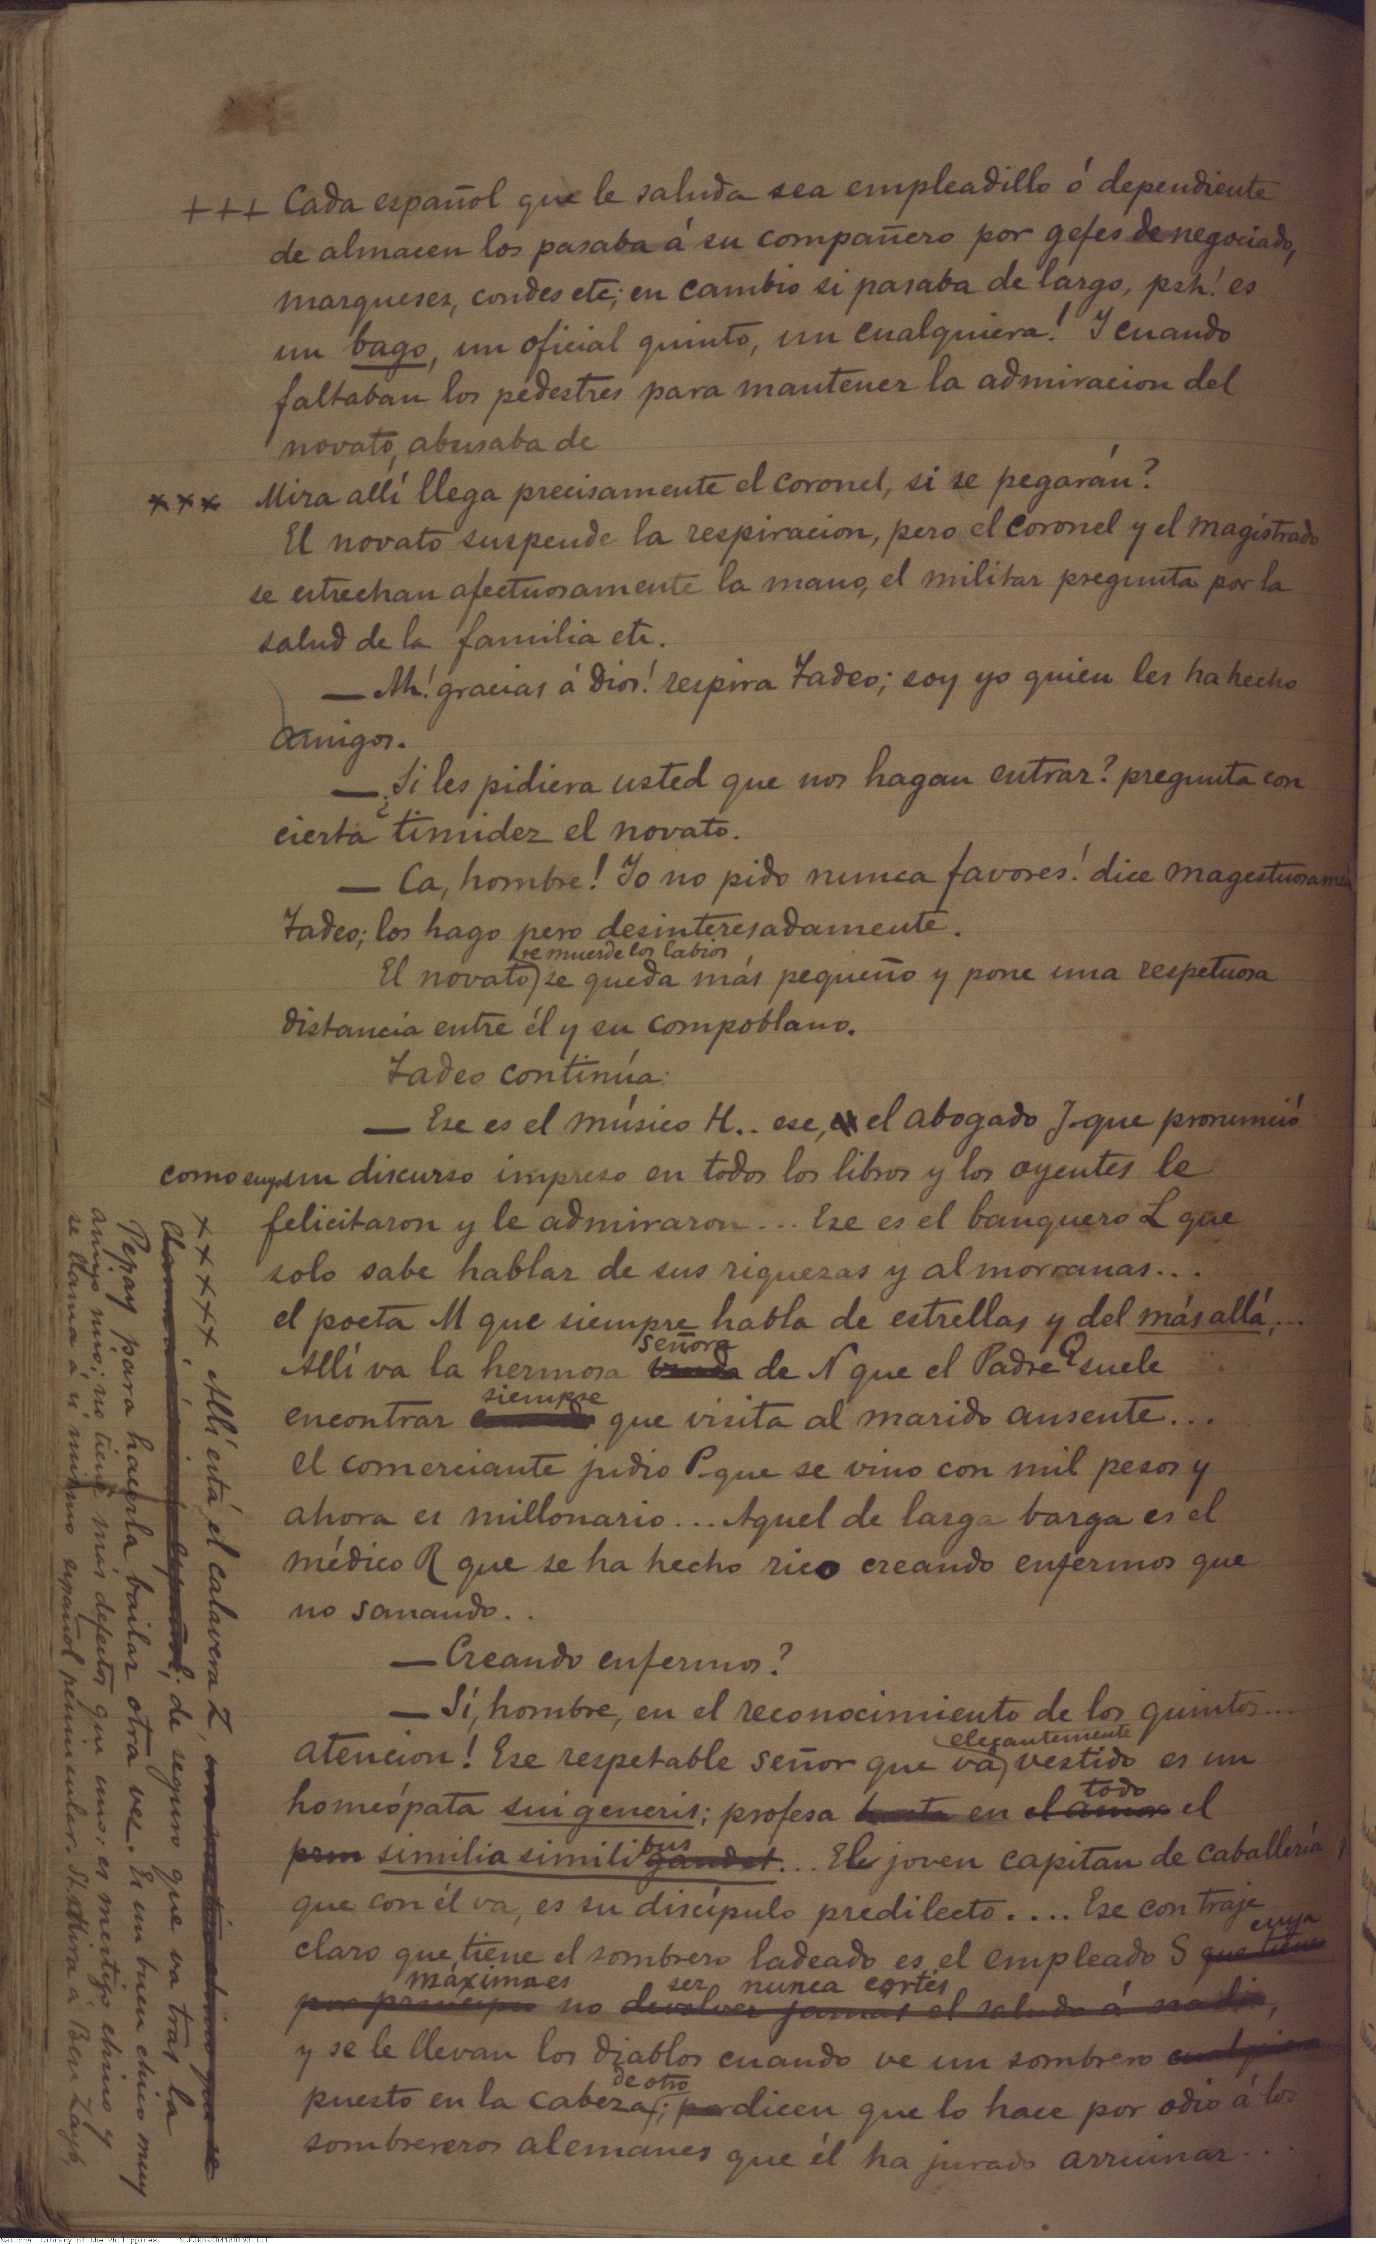 +++ Cada español que le saluda sea empleadillo ó dependiente
de almacen los pasaba á su compañero por gefes de negociado,
marqueses, condes etc; en cambio si pasaba de largo, psh! es
un bago, un oficial quinto, un cualquiera! Y cuando
faltaban los pedestres para mantener la admiracion del
novato, abusaba de
××× Mira allí llega precisamente el coronel, si se pegarán?
El novato suspende la respiracion, pero el coronel y el magistrado
se estrechan afectuosamente la mano, el militar pregunta por la
salud de la familia etc.
— Ah! gracias á Dios! respira Tadeo; soy yo quien les ha hecho
amigos.
— ¿Si les pidiera usted que nos hagan entrar? pregunta con
cierta timidez el novato.
— Ca, hombre! Yo no pido nunca favores! dice magestuosamen
Tadeo; los hago pero desinteresadamente.
se muerde los labios
El novato se queda más pequeño y pone una respetuosa
distancia entre él y su compoblano.
Tadeo continúa:
— Ese es el músico H.. ese, el abogado J. que pronunció
como suyo un discurso impreso en todos los libros y los oyentes le
felicitaron y le admiraron... Ese es el banquero L que
solo sabe hablar de sus riquezas y almorranas...
el poeta M que siempre habla de estrellas y del más allá,...
señora
Allí va la hermosa viuda de N que el Padre Q suele
siempre
encontrar cuando que visita al marido ausente...
el comerciante judio P. que se vino con mil pesos y
ahora es millonario... Aquel de larga barga es el
médico R que se ha hecho rico creando enfermos que
no sanando..
— Creando enfermos?
— Sí, hombre, en el reconocimiento de los quintos...
elegantemente
atencion! Ese respetable señor que va vestido es un
todo
homeópata sui generis; profesa en el amor el
bus
prin similia simili gaudet... El joven capitan de caballería
que con él va, es su discípulo predilecto.... Ese con traje
cuya
claro que tiene el sombrero ladeado es el empleado S que tiene
máxima es ser nunca cortés
por principio no devolver jamas el saludo á nadie,
y se le llevan los diablos cuando ve un sombrero
de otro
puesto en la cabeza; dicen que lo hace por odio á los
sombrereros alemanes que él ha jurado arruinar...
×××× Allí está el calavera Z,
de seguro que va tras la
Pepay para hacerla bailar otra vez. Es un buen chico muy
amigo mío; no tiene más defectos que uno: es mestizo chino y
se llama á sí mismo español peninsular. St. Mira á Ben Zayb,